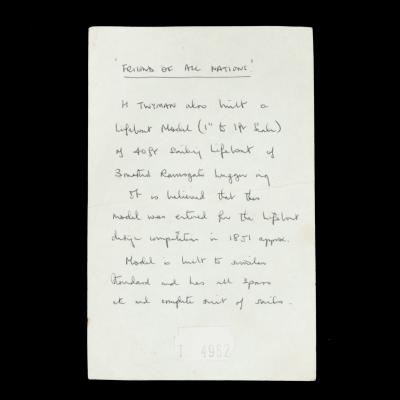 'FRIEND OF ALL NATIONS'
H TWYMAN also built a
Lifeboat Model (1" to 1ft Scale)
of 40ft Sailing Lifeboat of
3 masted Ramsgate lugger rig
It is believed that this
model was entered for the Lifeboat
design competition in 1851 approx.
Model is built to similar
standard and has all spars
etc and complete suit of sails.
I 4962